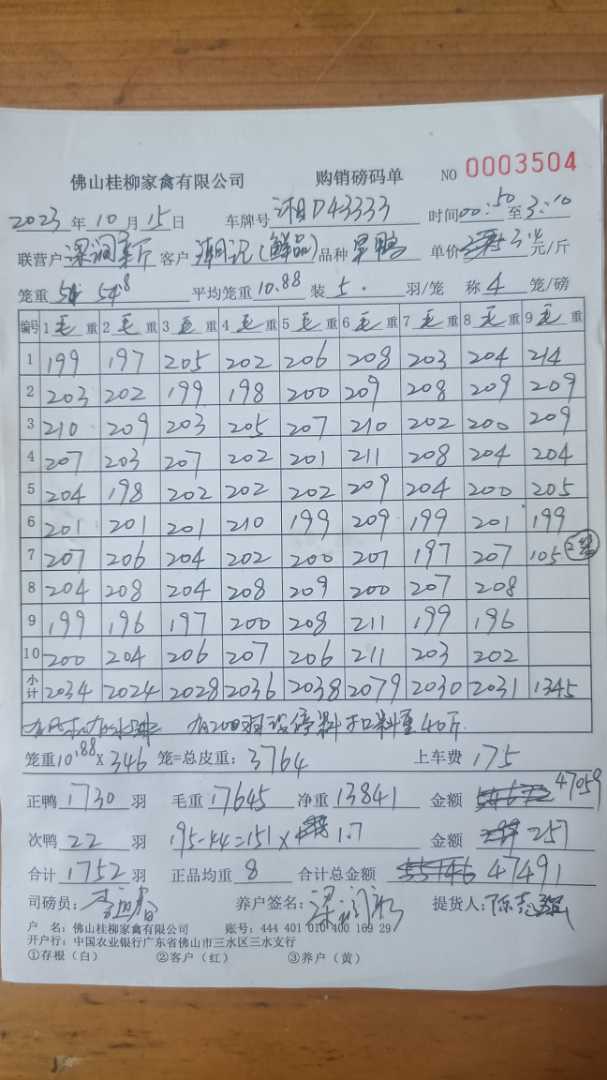 佛山桂柳家禽有限公司 购销磅码单 NO 0003504
2023年10月15日 车牌号 湘D43333 时间00:50至3:10
联营户 客户 潮记(鲜品) 品种 旱鸭 单价 3.4 元/斤
笼重 54.8 平均笼重 10.88 装 5 羽/笼 称 4 笼/磅
编号 1毛重 2毛重 3毛重 4毛重 5毛重 6毛重 7毛重 8毛重 9毛重
1 199 197 205 202 206 208 203 204 214
2 203 202 199 198 200 209 208 209 209
3 210 209 203 205 207 210 202 200 209
4 207 203 207 202 201 211 208 204 204
5 204 198 202 202 202 209 204 200 205
6 201 201 201 210 199 209 199 201 199
7 207 206 204 202 200 201 197 207 105 2笼
8 204 208 204 208 209 200 207 208
9 199 196 197 200 208 211 199 196
10 200 204 206 207 206 211 203 202
小计 2034 2024 2028 2036 2038 2079 2030 2031 1345
有200羽没停料扣料重40斤
笼重10.88×346笼=总皮重:3764 上车费 175
正鸭 1730 羽 毛重 17645 净重 13841 金额 47059
次鸭 22 羽 195-44=151× 1.7 金额 257
合计 1752 羽 正品均重 8 合计总金额 47491
司磅员: 养户签名: 提货人:
户 名:佛山桂柳家禽有限公司 账号:444 401 010 400 169 29
开户行:中国农业银行广东省佛山市三水区三水支行
①存根(白) ②客户(红) ③养户(黄)